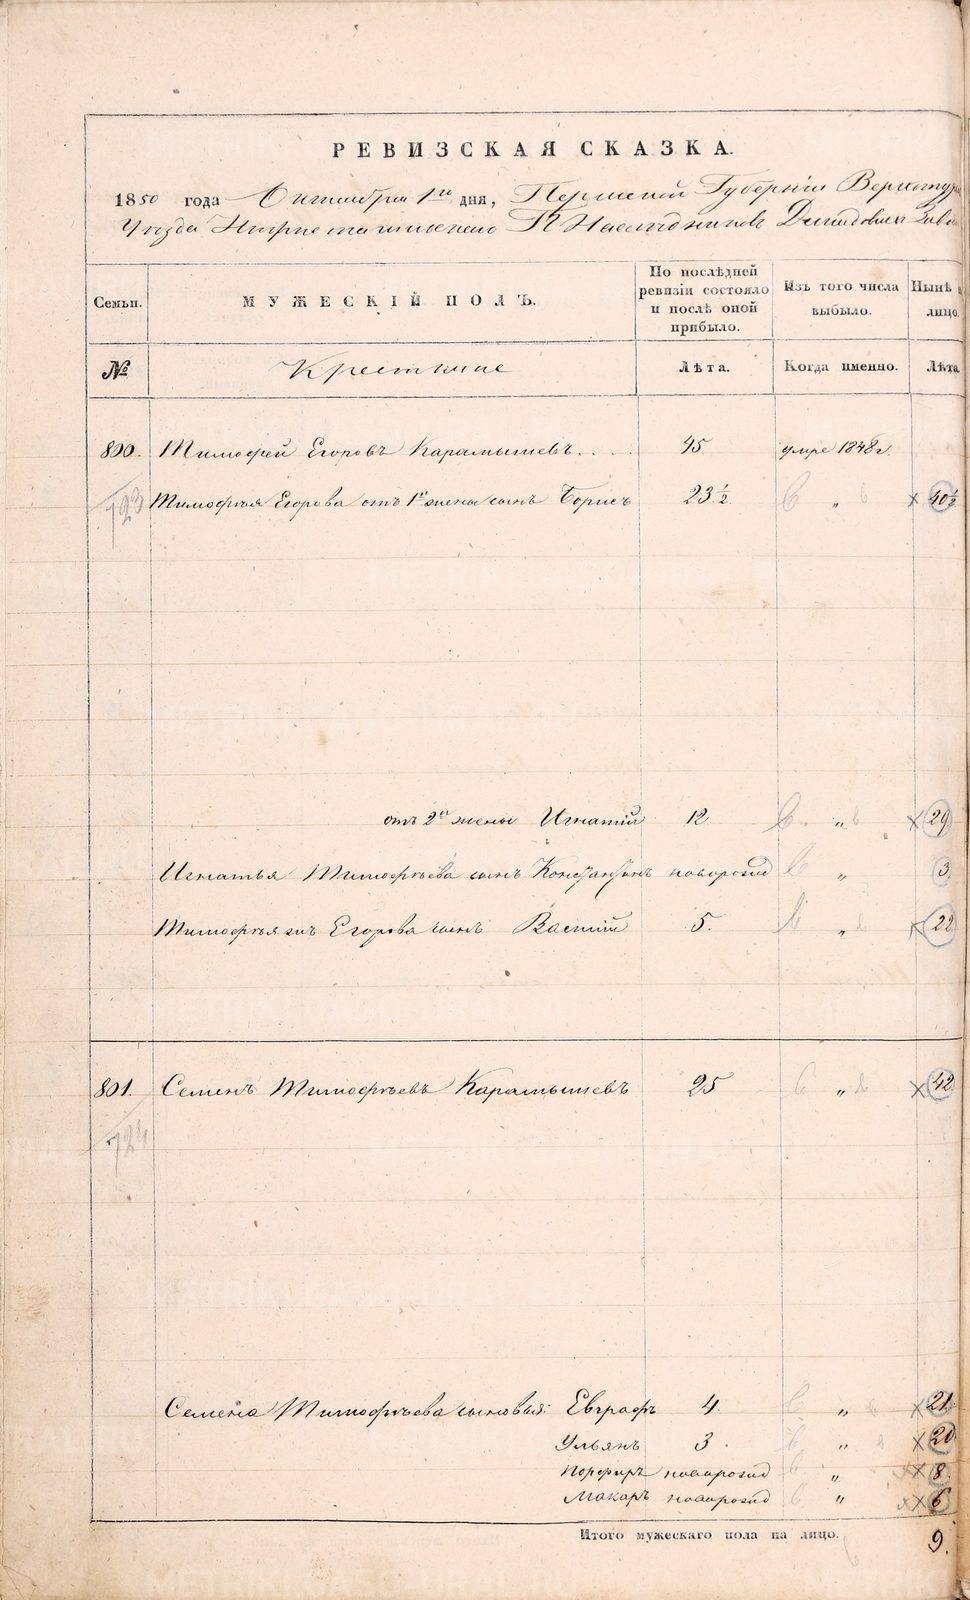 РЕВИЗСКАЯ СКАЗКА.
1850 года Октября 1го дня, Пермской Губерніи Верхотур
Уѣзда Нижнетагильскаго Гг Наслѣдниковъ Демидовыхъ Заво
Семьи. МУЖЕСКІЙ ПОЛЪ. По послѣдней ревизіи состояло и послѣ оной прибыло. Изъ того числа выбыло. Нынѣ лицо.
№ Крестьяне Лѣта. Когда именно. Лѣта
800. Тимофей Егоровъ Карамышевъ.... 45. умре 1848 г.
723 Тимофѣя Егорова отъ 1й жены сынъ Борисъ 23 1/2 " × 40 1/2
отъ 2й жены Игнатій 12 " × 29
Игнатья Тимофѣева сынъ Константинъ новорожд " 3.
Тимофѣя Егорова сынъ Васілій 5. " × 22
801. Семенъ Тимофѣевъ Карамышевъ 25 " × 42
724
Семена Тимофѣева сыновья: Евграфъ 4. " × 21
Ульянъ 3. " × 20
Порфиръ новорожд " ×× 8.
Макаръ новорожд " ×× 6
Итого мужескаго пола на лицо. 9.
METRIKI.GASO-URAL.RU